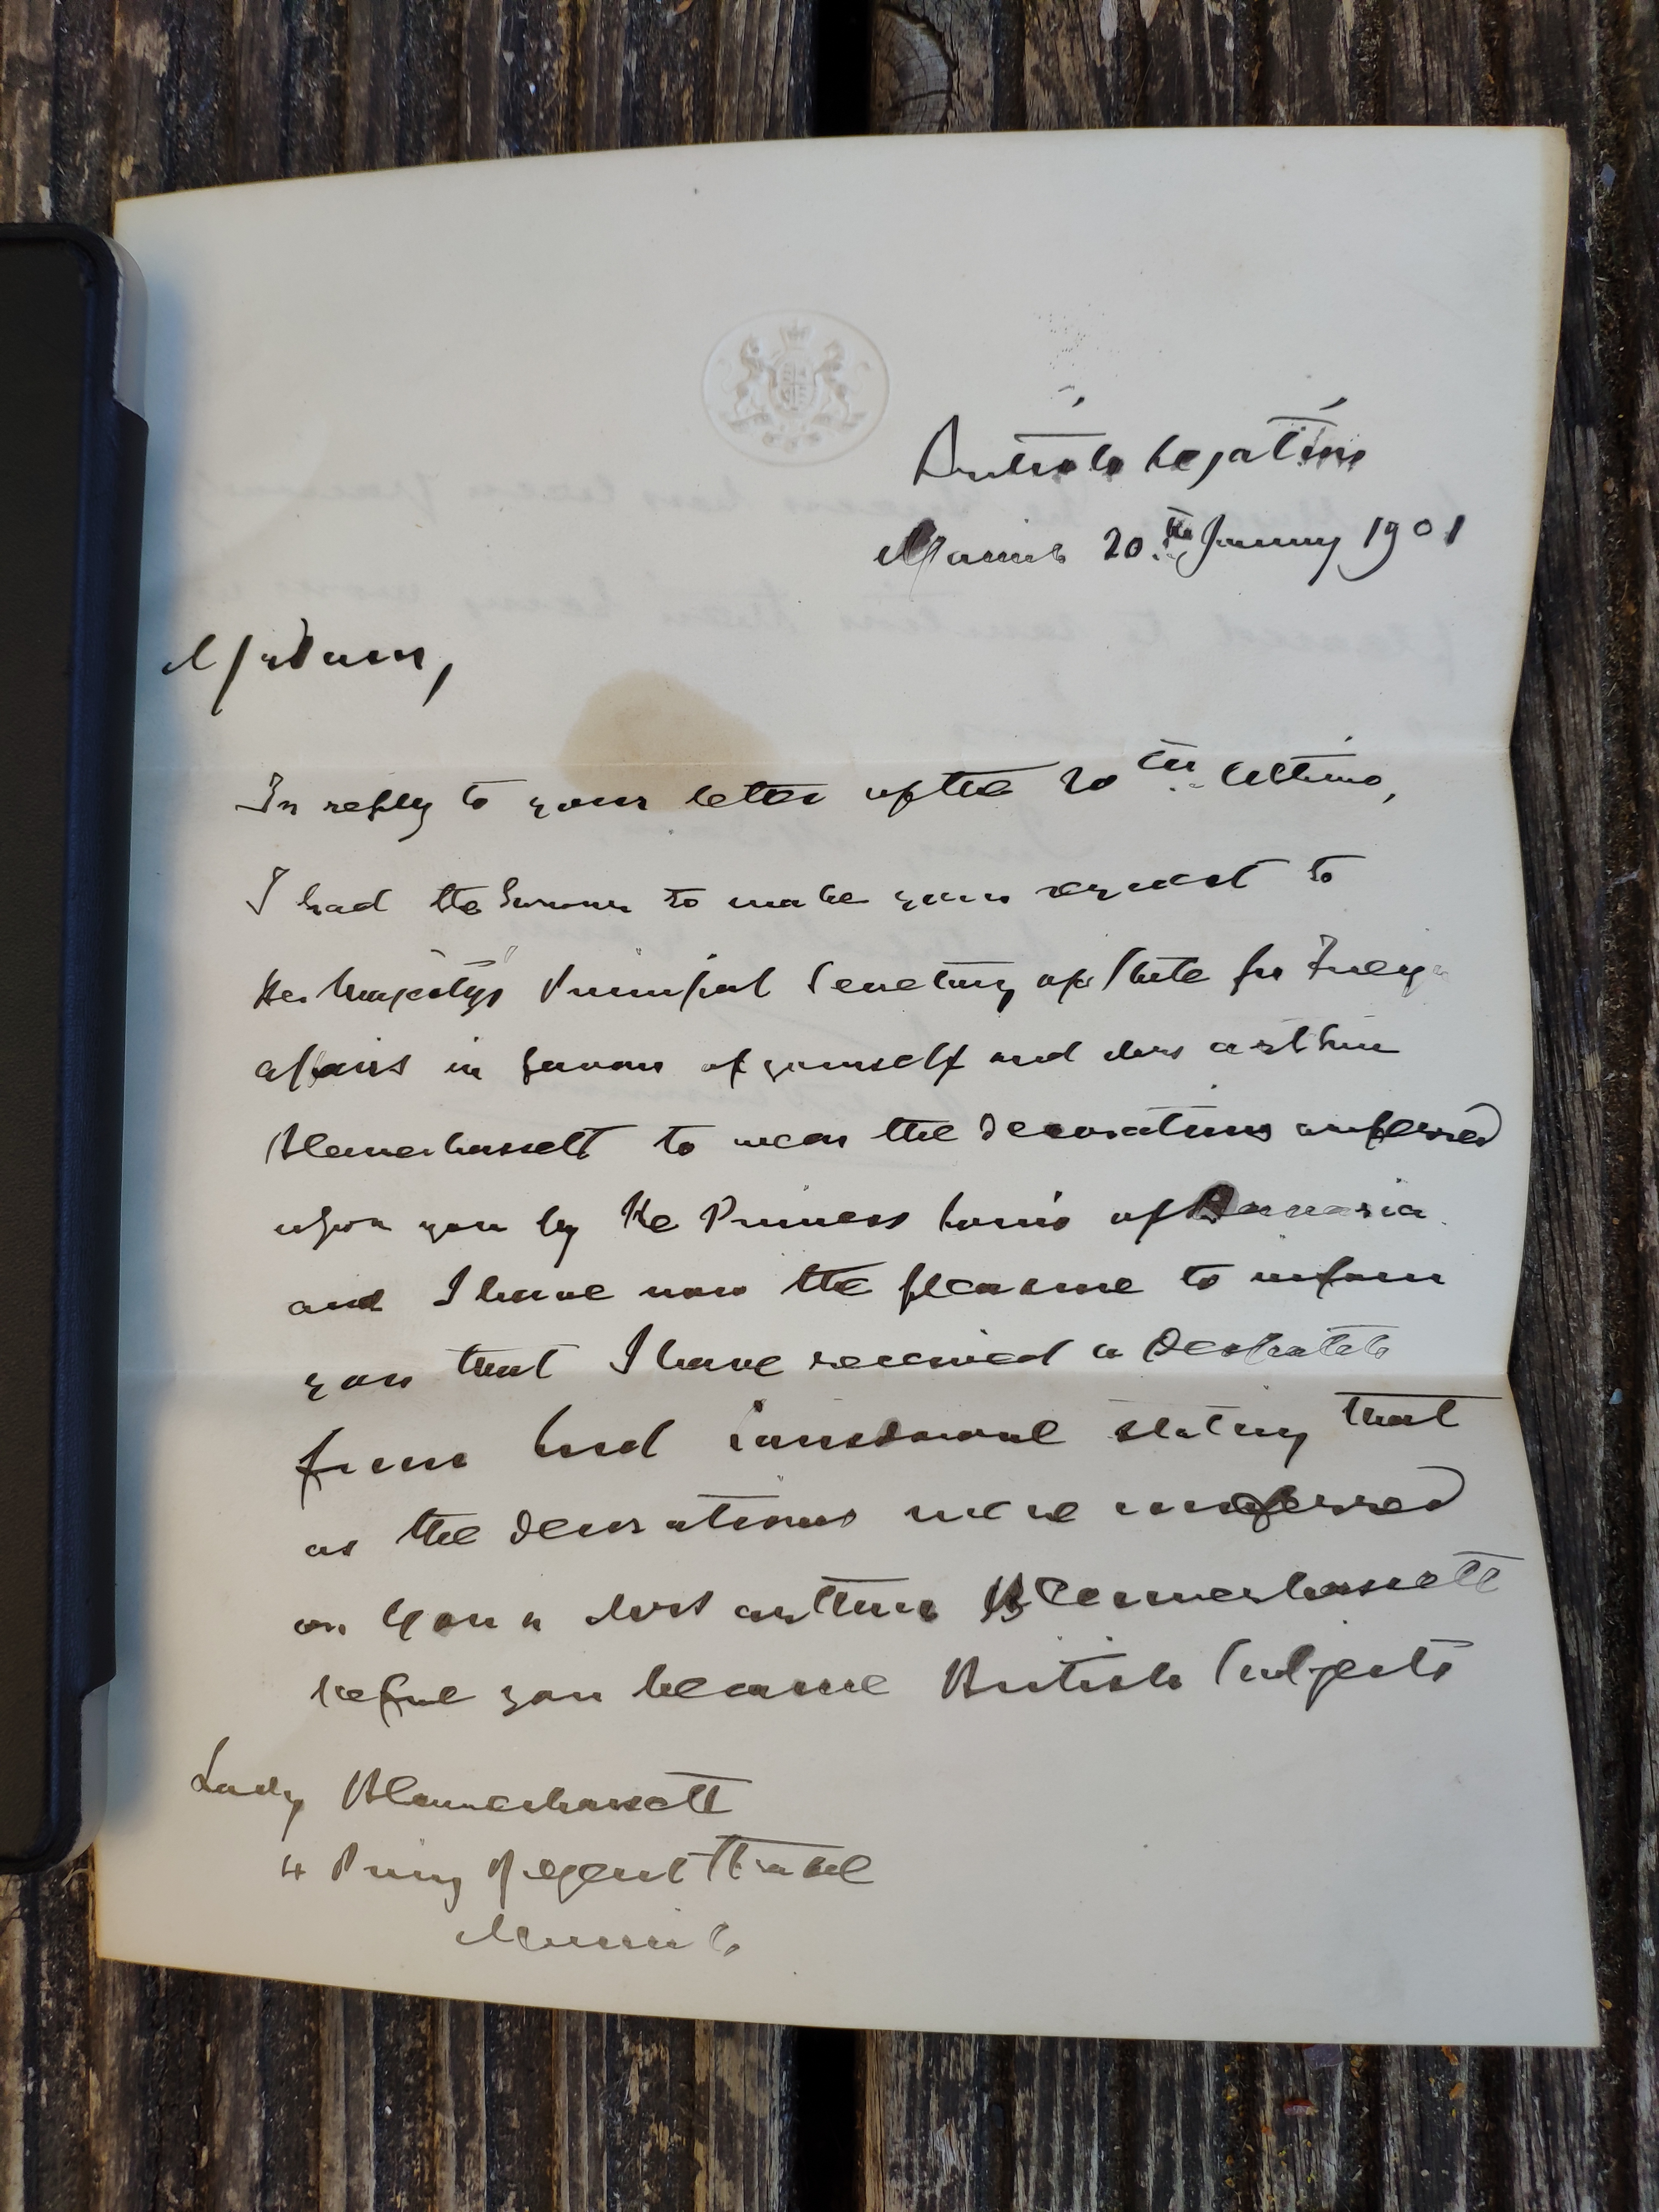 British Legation
Munich 20th January 1901
Madam,
In reply to your letter of the 20th Ultimo,
I had the honour to make your request to
Her Majesty's Principal Secretary of State for Foreign
affairs in favour of yourself and Mrs Arthur
Blennerhassett to wear the decorations conferred
upon you by the Princess Louis of Bavaria
and I have now the pleasure to inform
you that I have received a Despatch
from Lord Lansdowne stating that
as the decorations were conferred
on you & Mrs Arthur Blennerhassett
before you became British Subjects
Lady Blennerhassett
4 Prinz Regent Strasse
Munich